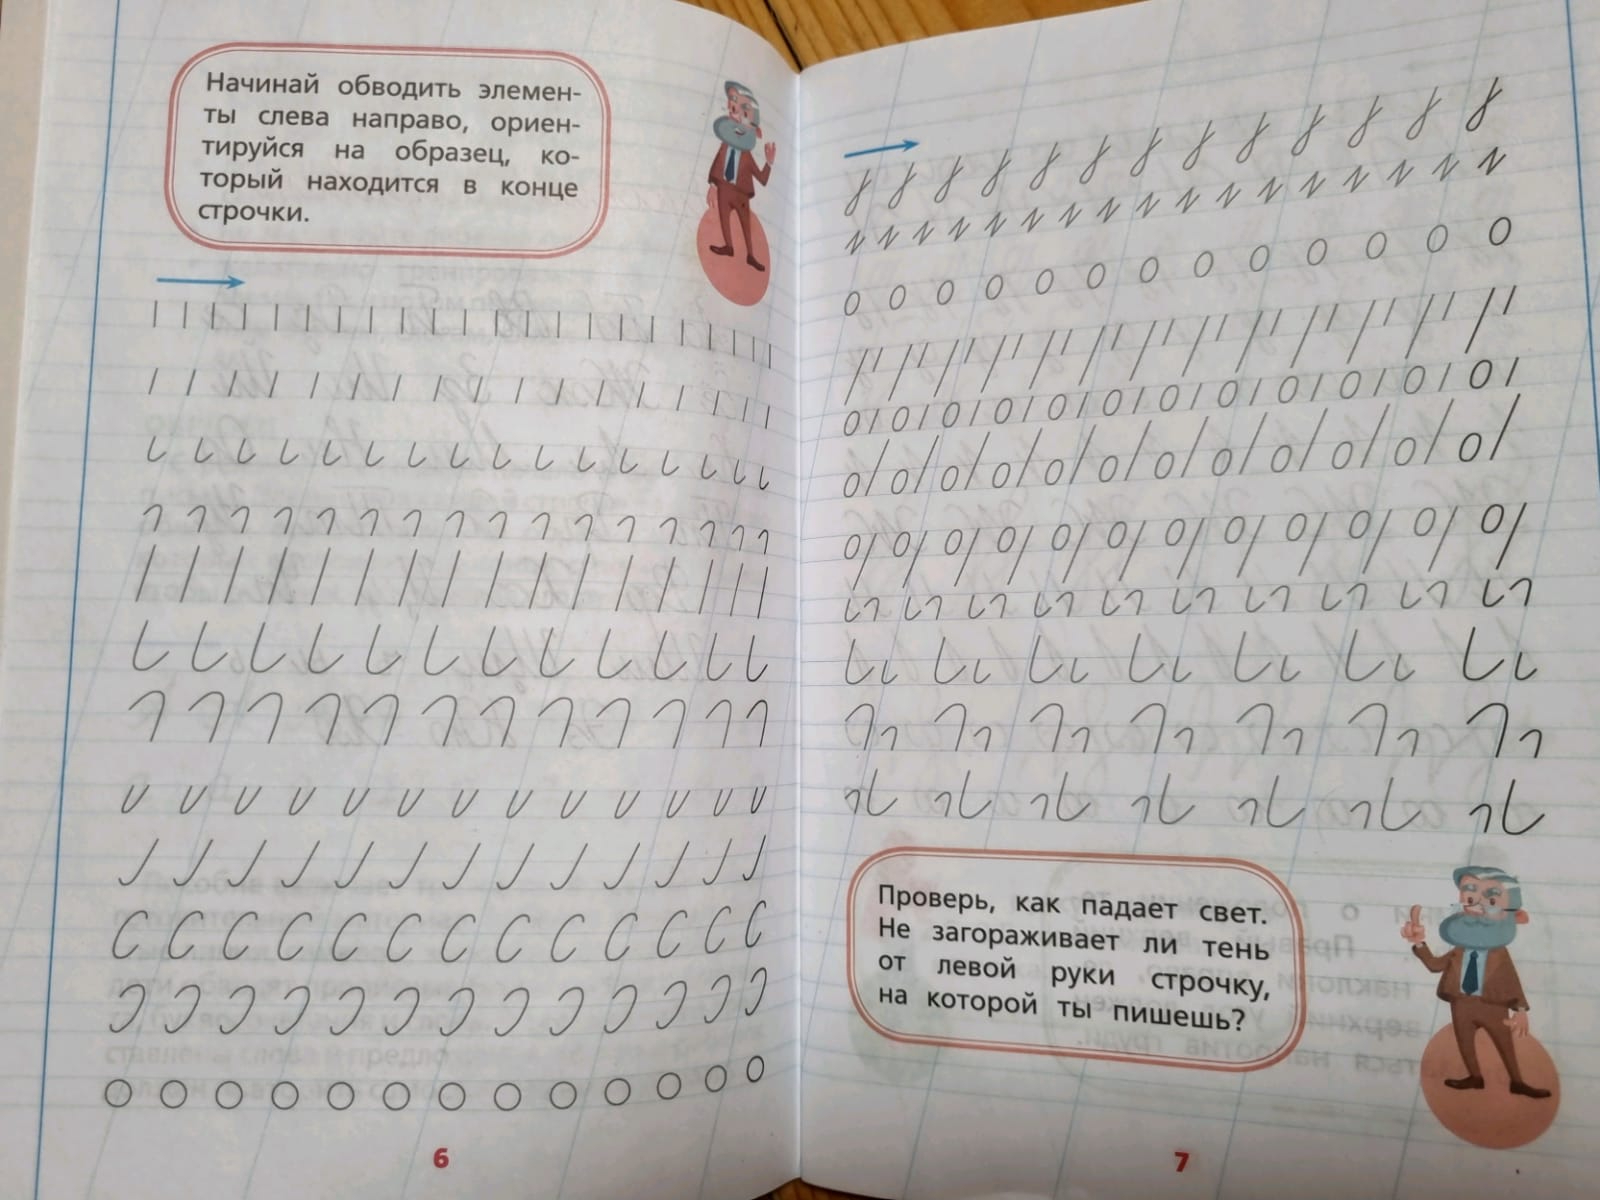 Начинай обводить элемен-
ты слева направо, ориен-
тируйся на образец, ко-
торый находится в конце
строчки.
6
Проверь, как падает свет.
Не загораживает ли тень
от левой руки строчку,
на которой ты пишешь?
7